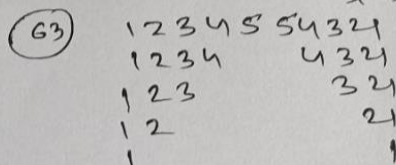 63) 1 2 3 4 5 5 4 3 2 1
1 2 3 4 4 3 2 1
1 2 3 3 2 1
1 2 2 1
1 1